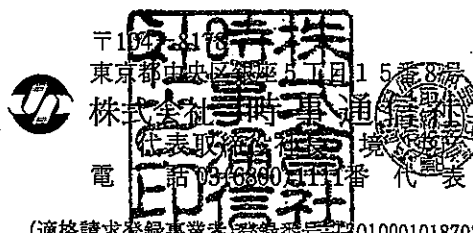 〒104-8178
東京都中央区銀座5丁目15番8号
株式会社 時事通信社
代表取締役社長 境
電 話 03(6800)1111番 代 表
(適格請求登録事業者)登録番号
株式會社
時事通信
社之印